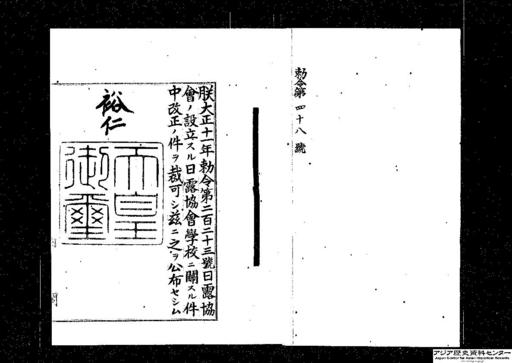 勅令第四十八號
朕大正十一年勅令第二百二十三號日露協
會ノ設立スル日露協會學校ニ關スル件
中改正ノ件ヲ裁可シ玆ニ之ヲ公布セシム
裕仁
天皇
御璽
内
閣
アジア歴史資料センター
Japan Center for Asian Historical Records